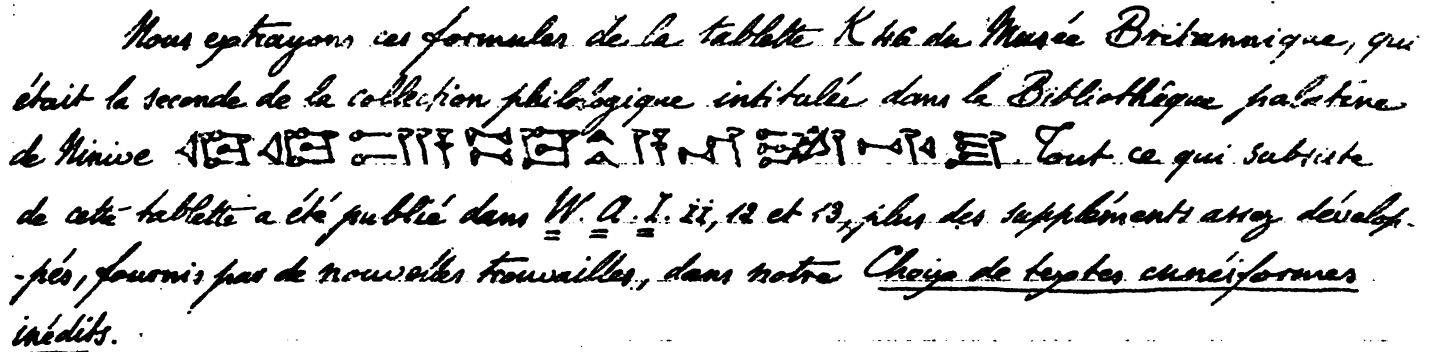 Nous extrayons ces formules de la tablette K 46 du Musée Britannique, qui
était la seconde de la collection philologique intitulée dans la Bibliothèque palatine
de Ninive . Tout ce qui subsiste
de cette tablette a été publié dans W. A. I. II, 12 et 13, plus des suppléments assez dévelop-
-pés, fournis par de nouvelles trouvailles, dans notre Choix de textes cunéiformes
inédits.